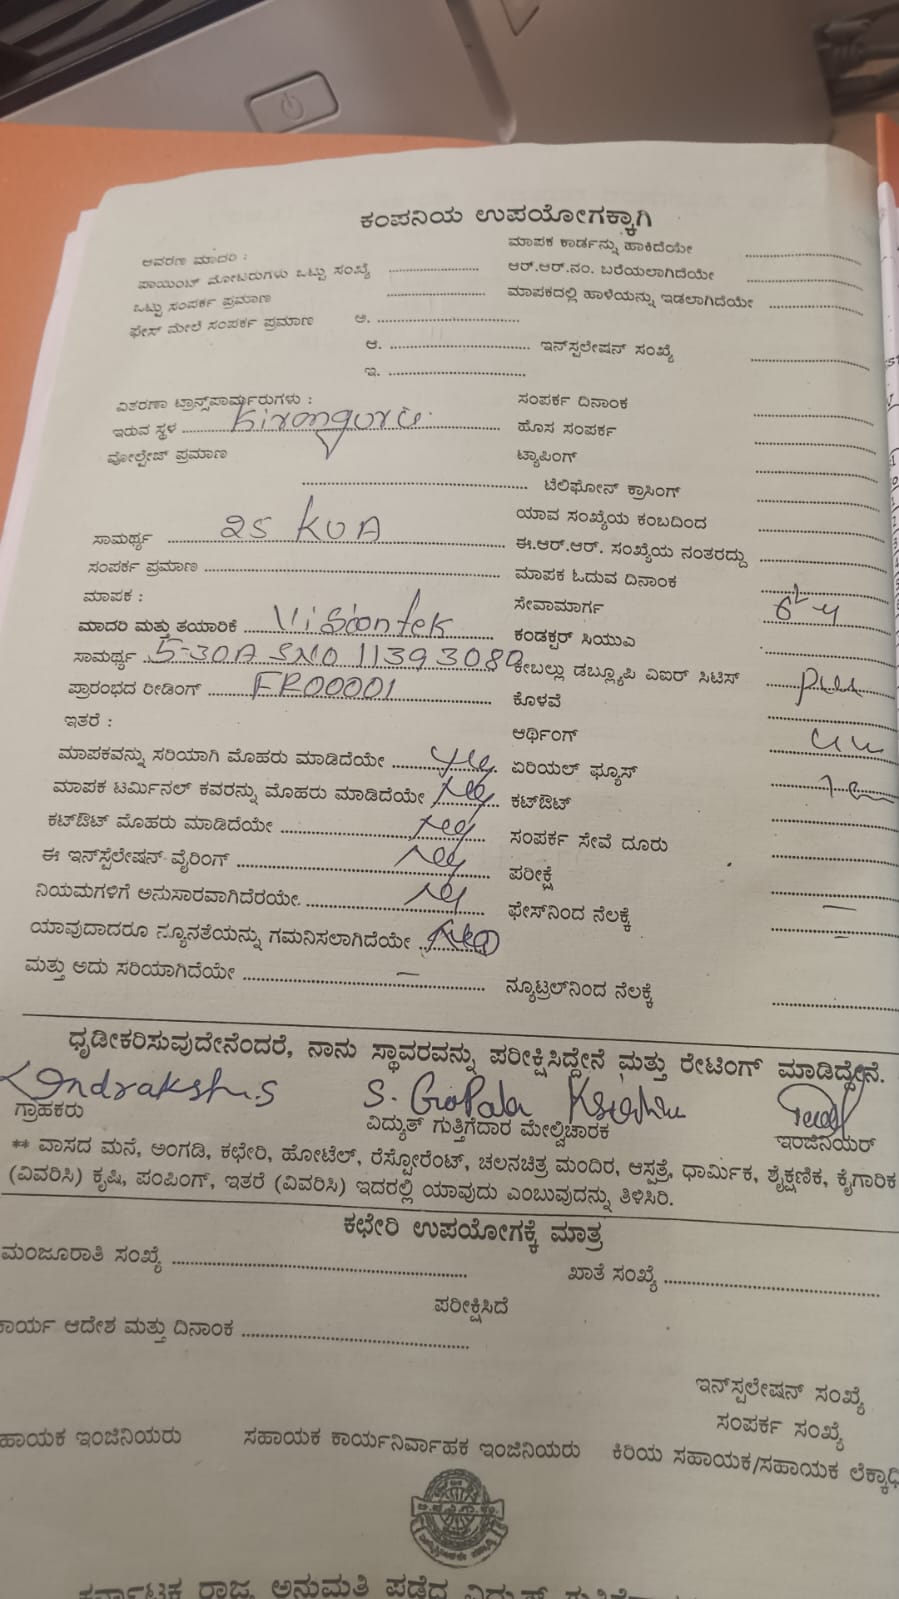 ಕಂಪನಿಯ ಉಪಯೋಗಕ್ಕಾಗಿ
ಆವರಣ ಮಾದರಿ :
ಮಾಪಕ ಕಾರ್ಡನ್ನು ಹಾಕಿದೆಯೇ ..........
ಪಾಯಿಂಟ್ ಮೋಟರುಗಳು ಒಟ್ಟು ಸಂಖ್ಯೆ ..........
ಆರ್.ಆರ್.ನಂ. ಬರೆಯಲಾಗಿದೆಯೇ ..........
ಒಟ್ಟು ಸಂಪರ್ಕ ಪ್ರಮಾಣ ..........
ಮಾಪಕದಲ್ಲಿ ಹಾಳೆಯನ್ನು ಇಡಲಾಗಿದೆಯೇ ..........
ಫೇಸ್ ಮೇಲೆ ಸಂಪರ್ಕ ಪ್ರಮಾಣ ಅ. ..........
ಆ. .......... ಇನ್‌ಸ್ಪಲೇಷನ್ ಸಂಖ್ಯೆ ..........
ಇ. ..........
ವಿತರಣಾ ಟ್ರಾನ್ಸ್‌ಫಾರ್ಮಾರುಗಳು :
ಸಂಪರ್ಕ ದಿನಾಂಕ ..........
ಇರುವ ಸ್ಥಳ ..........
ಹೊಸ ಸಂಪರ್ಕ ..........
ವೋಲ್ಟೇಜ್ ಪ್ರಮಾಣ
ಟ್ಯಾಪಿಂಗ್ ..........
.......... ಟೆಲಿಫೋನ್ ಕ್ರಾಸಿಂಗ್ ..........
ಯಾವ ಸಂಖ್ಯೆಯ ಕಂಬದಿಂದ ..........
ಸಾಮರ್ಥ್ಯ 25 KVA
ಈ.ಆರ್.ಆರ್. ಸಂಖ್ಯೆಯ ನಂತರದ್ದು ..........
ಸಂಪರ್ಕ ಪ್ರಮಾಣ ..........
ಮಾಪಕ ಓದುವ ದಿನಾಂಕ ..........
ಮಾಪಕ :
ಸೇವಾಮಾರ್ಗ
ಮಾದರಿ ಮತ್ತು ತಯಾರಿಕೆ Visiontek
ಕಂಡಕ್ಟರ್ ಸಿಯುಎ ..........
ಸಾಮರ್ಥ್ಯ 5-30A SNO 11393080
ಕೇಬಲ್ಲು ಡಬ್ಲ್ಯೂಪಿ ಎಐಆರ್ ಸಿಟಿಸ್
ಪ್ರಾರಂಭದ ರೀಡಿಂಗ್ FR00001
ಕೊಳವೆ ..........
ಇತರೆ :
ಆರ್ಥಿಂಗ್
ಮಾಪಕವನ್ನು ಸರಿಯಾಗಿ ಮೊಹರು ಮಾಡಿದೆಯೇ yes
ಏರಿಯಲ್ ಫ್ಯೂಸ್
ಮಾಪಕ ಟರ್ಮಿನಲ್ ಕವರನ್ನು ಮೊಹರು ಮಾಡಿದೆಯೇ yes
ಕಟ್‌ಔಟ್ ..........
ಕಟ್‌ಔಟ್ ಮೊಹರು ಮಾಡಿದೆಯೇ yes
ಸಂಪರ್ಕ ಸೇವೆ ದೂರು ..........
ಈ ಇನ್‌ಸ್ಪೆಲೇಷನ್ ವೈರಿಂಗ್ yes
ಪರೀಕ್ಷೆ ..........
ನಿಯಮಗಳಿಗೆ ಅನುಸಾರವಾಗಿದೆರಯೇ. yes
ಫೇಸ್‌ನಿಂದ ನೆಲಕ್ಕೆ —
ಯಾವುದಾದರೂ ನ್ಯೂನತೆಯನ್ನು ಗಮನಿಸಲಾಗಿದೆಯೇ
ಮತ್ತು ಅದು ಸರಿಯಾಗಿದೆಯೇ —
ನ್ಯೂಟ್ರಲ್‌ನಿಂದ ನೆಲಕ್ಕೆ ..........
ಧೃಡೀಕರಿಸುವುದೇನೆಂದರೆ, ನಾನು ಸ್ಥಾವರವನ್ನು ಪರೀಕ್ಷಿಸಿದ್ದೇನೆ ಮತ್ತು ರೇಟಿಂಗ್ ಮಾಡಿದ್ದೇನೆ.
S. Gopala
ಗ್ರಾಹಕರು ವಿದ್ಯುತ್ ಗುತ್ತಿಗೆದಾರ ಮೇಲ್ವಿಚಾರಕ ಇಂಜಿನಿಯರ್
** ವಾಸದ ಮನೆ, ಅಂಗಡಿ, ಕಛೇರಿ, ಹೋಟೆಲ್, ರೆಸ್ಟೋರೆಂಟ್, ಚಲನಚಿತ್ರ ಮಂದಿರ, ಆಸ್ಪತ್ರೆ, ಧಾರ್ಮಿಕ, ಶೈಕ್ಷಣಿಕ, ಕೈಗಾರಿಕ
(ವಿವರಿಸಿ) ಕೃಷಿ, ಪಂಪಿಂಗ್, ಇತರೆ (ವಿವರಿಸಿ) ಇದರಲ್ಲಿ ಯಾವುದು ಎಂಬುವುದನ್ನು ತಿಳಿಸಿರಿ.
ಕಛೇರಿ ಉಪಯೋಗಕ್ಕೆ ಮಾತ್ರ
ಮಂಜೂರಾತಿ ಸಂಖ್ಯೆ .......... ಖಾತೆ ಸಂಖ್ಯೆ ..........
ಪರೀಕ್ಷಿಸಿದೆ
ಕಾರ್ಯ ಆದೇಶ ಮತ್ತು ದಿನಾಂಕ ..........
ಇನ್‌ಸ್ಪಲೇಷನ್ ಸಂಖ್ಯೆ
ಸಂಪರ್ಕ ಸಂಖ್ಯೆ
ಹಾಯಕ ಇಂಜಿನಿಯರು ಸಹಾಯಕ ಕಾರ್ಯನಿರ್ವಾಹಕ ಇಂಜಿನಿಯರು ಕಿರಿಯ ಸಹಾಯಕ/ಸಹಾಯಕ ಲೆಕ್ಕಾಧಿ
ಕರ್ನಾಟಕ ರಾಜ್ಯ ಅನುಮತಿ ಪಡೆದ ವಿದ್ಯುತ್